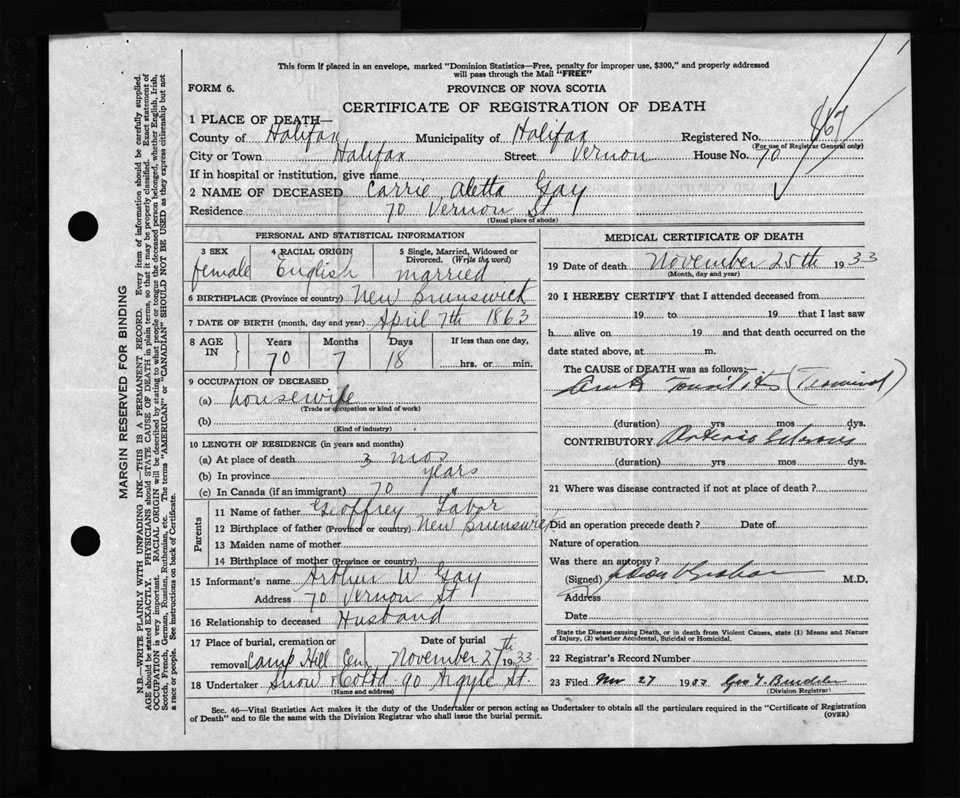 This form if placed in an envelope, marked "Dominion Statistics—Free, penalty for improper use, $300," and properly addressed
will pass through the Mail "FREE"
FORM 6.
PROVINCE OF NOVA SCOTIA
CERTIFICATE OF REGISTRATION OF DEATH
1 PLACE OF DEATH—
County of Halifax Municipality of Halifax Registered No.
(For use of Registrar General only)
City or Town Halifax Street Vernon House No. 70
If in hospital or institution, give name
2 NAME OF DECEASED Carrie Aletta Gay
Residence 70 Vernon St
(Usual place of abode)
PERSONAL AND STATISTICAL INFORMATION
3 SEX 4 RACIAL ORIGIN 5 Single, Married, Widowed or
Divorced. (Write the word)
female English married
6 BIRTHPLACE (Province or country) New Brunswick
7 DATE OF BIRTH (month, day and year) April 7th 1863
8 AGE IN Years Months Days If less than one day,
70 7 18 hrs. or min.
9 OCCUPATION OF DECEASED
(a) housewife
(Trade or occupation or kind of work)
(b)
(Kind of industry)
10 LENGTH OF RESIDENCE (in years and months)
(a) At place of death 3 mos
(b) In province years
(c) In Canada (if an immigrant) 70 "
Parents
11 Name of father Geoffrey Tabor
12 Birthplace of father (Province or country) New Brunswick
13 Maiden name of mother
14 Birthplace of mother (Province or country)
15 Informant's name Arthur W Gay
Address 70 Vernon St
16 Relationship to deceased Husband
17 Place of burial, cremation or Date of burial
removal Camp Hill Cem November 27th 1933
18 Undertaker Snow & Co Ltd 90 Argyle St.
(Name and address)
MEDICAL CERTIFICATE OF DEATH
19 Date of death November 25th 1933
(Month, day and year)
20 I HEREBY CERTIFY that I attended deceased from
19 to 19 that I last saw
h alive on 19 and that death occurred on the
date stated above, at m.
The CAUSE of DEATH was as follows:
Tonsilitis (Terminal)
(duration) yrs mos dys.
CONTRIBUTORY
(duration) yrs mos dys.
21 Where was disease contracted if not at place of death?
Did an operation precede death? Date of
Nature of operation
Was there an autopsy?
(Signed) M.D.
Address
Date
State the Disease causing Death, or in death from Violent Causes, state (1) Means and Nature
of Injury, (2) whether Accidental, Suicidal or Homicidal.
22 Registrar's Record Number
23 Filed Nov 27 1933
(Division Registrar)
Sec. 46—Vital Statistics Act makes it the duty of the Undertaker or person acting as Undertaker to obtain all the particulars required in the "Certificate of Registration
of Death" and to file the same with the Division Registrar who shall issue the burial permit.
(OVER)
MARGIN RESERVED FOR BINDING
N.B.—WRITE PLAINLY WITH UNFADING INK—THIS IS A PERMANENT RECORD. Every item of information should be carefully supplied.
AGE should be stated EXACTLY. PHYSICIANS should STATE CAUSE OF DEATH in plain terms, so that it may be properly classified. Exact statement of
OCCUPATION is very important. RACIAL ORIGIN will be described by stating to what people or tongue the deceased person belonged, whether English, Irish,
Scotch, French, German, Russian, Ruthenian, etc. The terms "AMERICAN" or "CANADIAN" SHOULD NOT BE USED as they express citizenship but not
a race or people. See instructions on back of Certificate.